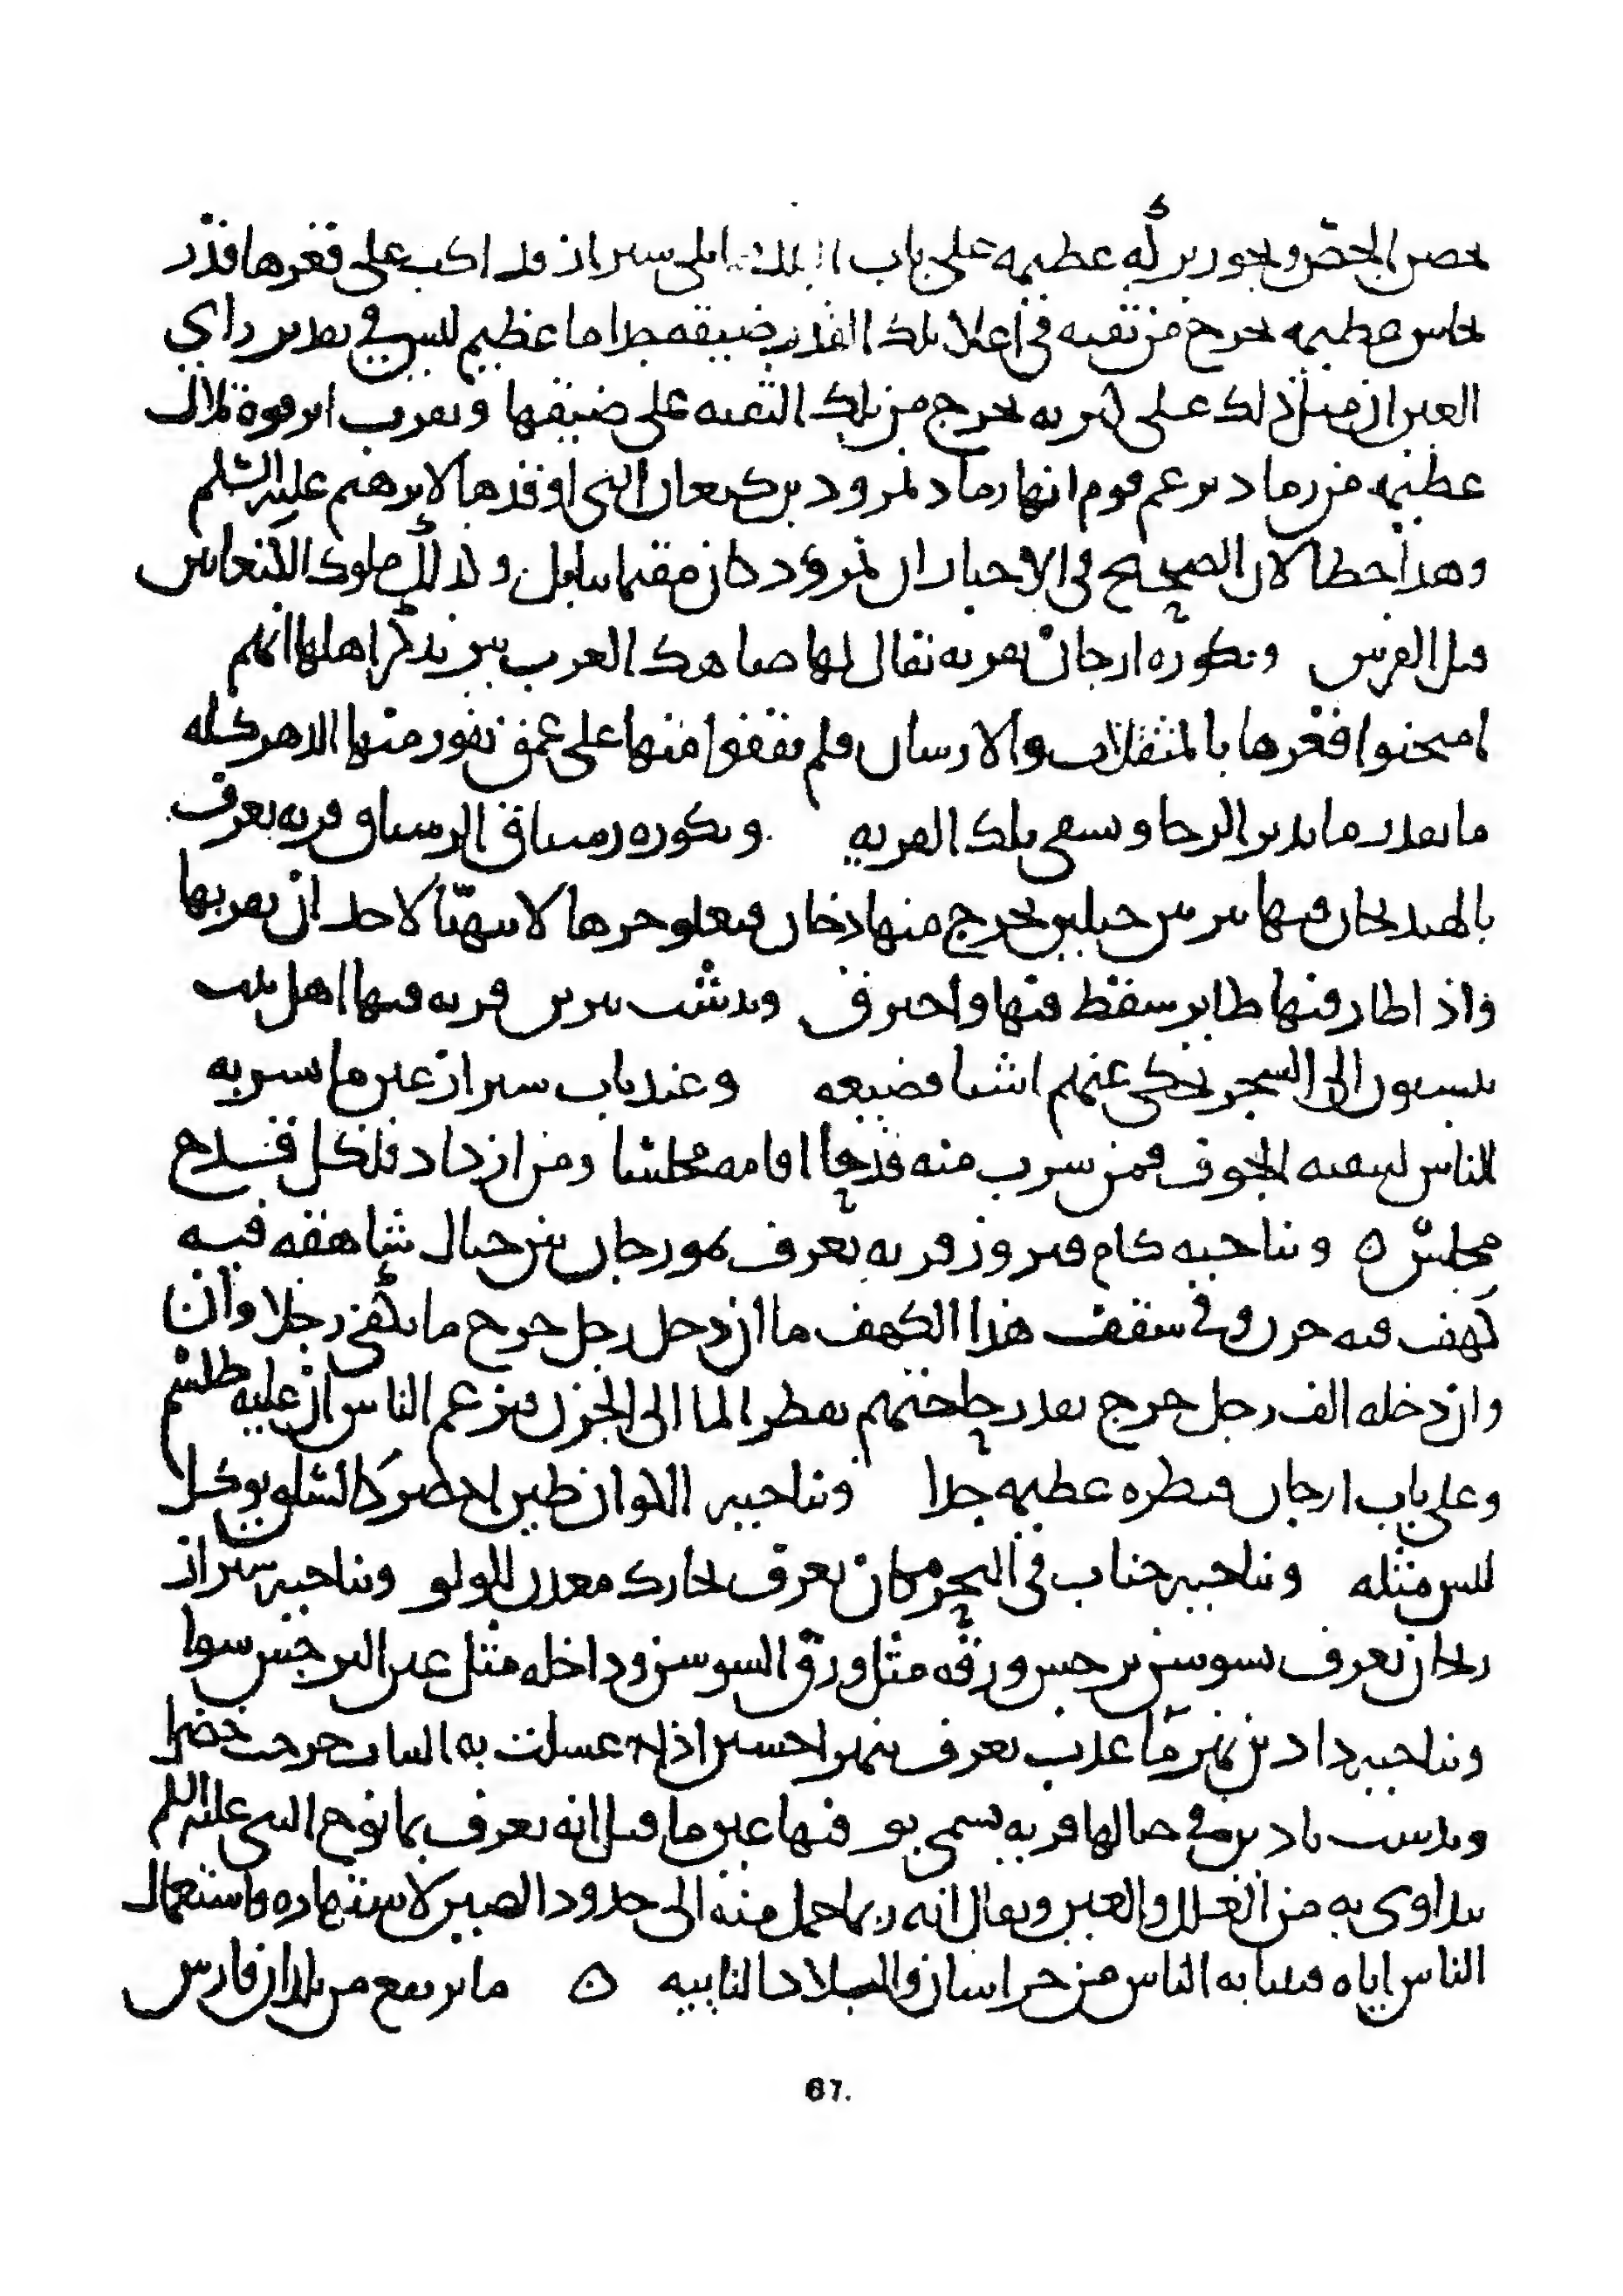 بحصن الجص وبجور بركه عظيمه على باب البلد مما يلى سيراز قد اكب على قعرها قدر
نحاس عظيمه يخرج من ثقبه فى اعلا تلك القدر ضيقه جدا ما عظيم ليس فى تقدير راي
العين ان مثل ذلك على كثرته يخرج من تلك الثقبه على ضيقها وبقرب ابرقوة تلال
عظيمه من رماد يزعم قوم انها رماد نمرود بن كنعان التى اوقدها لابرهيم عليه السلم
وهذا خطا لان الصحيح فى الاخبار ان نمرود كان مقيما ببابل وكذلك ملوك الكنعانين
قبل الفرس وبكوره ارجان بقريه يقال لها صاهك العرب بير يذكر اهلها انهم
امتحنوا قعرها بالمثقلات والارسان فلم يقفوا منها على عمق يفور منها الدهر كله
ما بقدر ما يدير الرحا ويسقى تلك القريه وبكوره رستاق الرستاق قريه يعرف
بالهنديجان فيها بير بين جبلين يخرج منها دخان فيعلو حرها لا يتهيا لاحد ان يقربها
واذا طار فيها طاير سقط فيها واحترق وبدشت بيرين قريه فيها اهل بيت
ينسبون الى السحر يحكى عنهم اشيا فضيعه وعند باب سيراز عين ما يشربه
الناس لتنقيه الجوف فمن شرب منه قدحا اقامه مجلسا ومن ازداد فلكل قدح
مجلس ٥ وبناحيه كام فيروز قريه يعرف بمورجان بين جبال شاهقه فيه
كهف فيه جرن وفى سقف هذا الكهف ما ان دخل رجل خرج ما يكفى رجلا وان
وان دخله الف رجل خرج بقدر حاجتهم يقطر الما الى الجرن فيزعم الناس ان عليه طلسم
وعلى باب ارجان قنطره عظيمه جدا وبناحيه الاكوان طين اخضر كالسلق يوكل
ليس مثله وبناحيه جناب فى البحر مكان يعرف بخارك معدن للولو وبناحيه سيراز
ريحان يعرف بسوسن نرجس ورقه مثل ورق السوسن وداخله مثل عين النرجس سوا
وبناحيه داد بين نهر ما عذب يعرف بنهر احسين اذا عسلت به الثياب خرجت خضرا
وبدست بادين فى جبالها قريه يسمى بو فيها عين ما قيل انه يعرف بما نوح النبى عليه السلم
يداوى به من العلل والعين ويقال انه ربما حمل منه الى حدود الصين لاستهاره واستعمال
الناس اياه فينتابه الناس من خراسان والبلاد النايبه ٥ ما يرتفع من بلدان فارس
67.